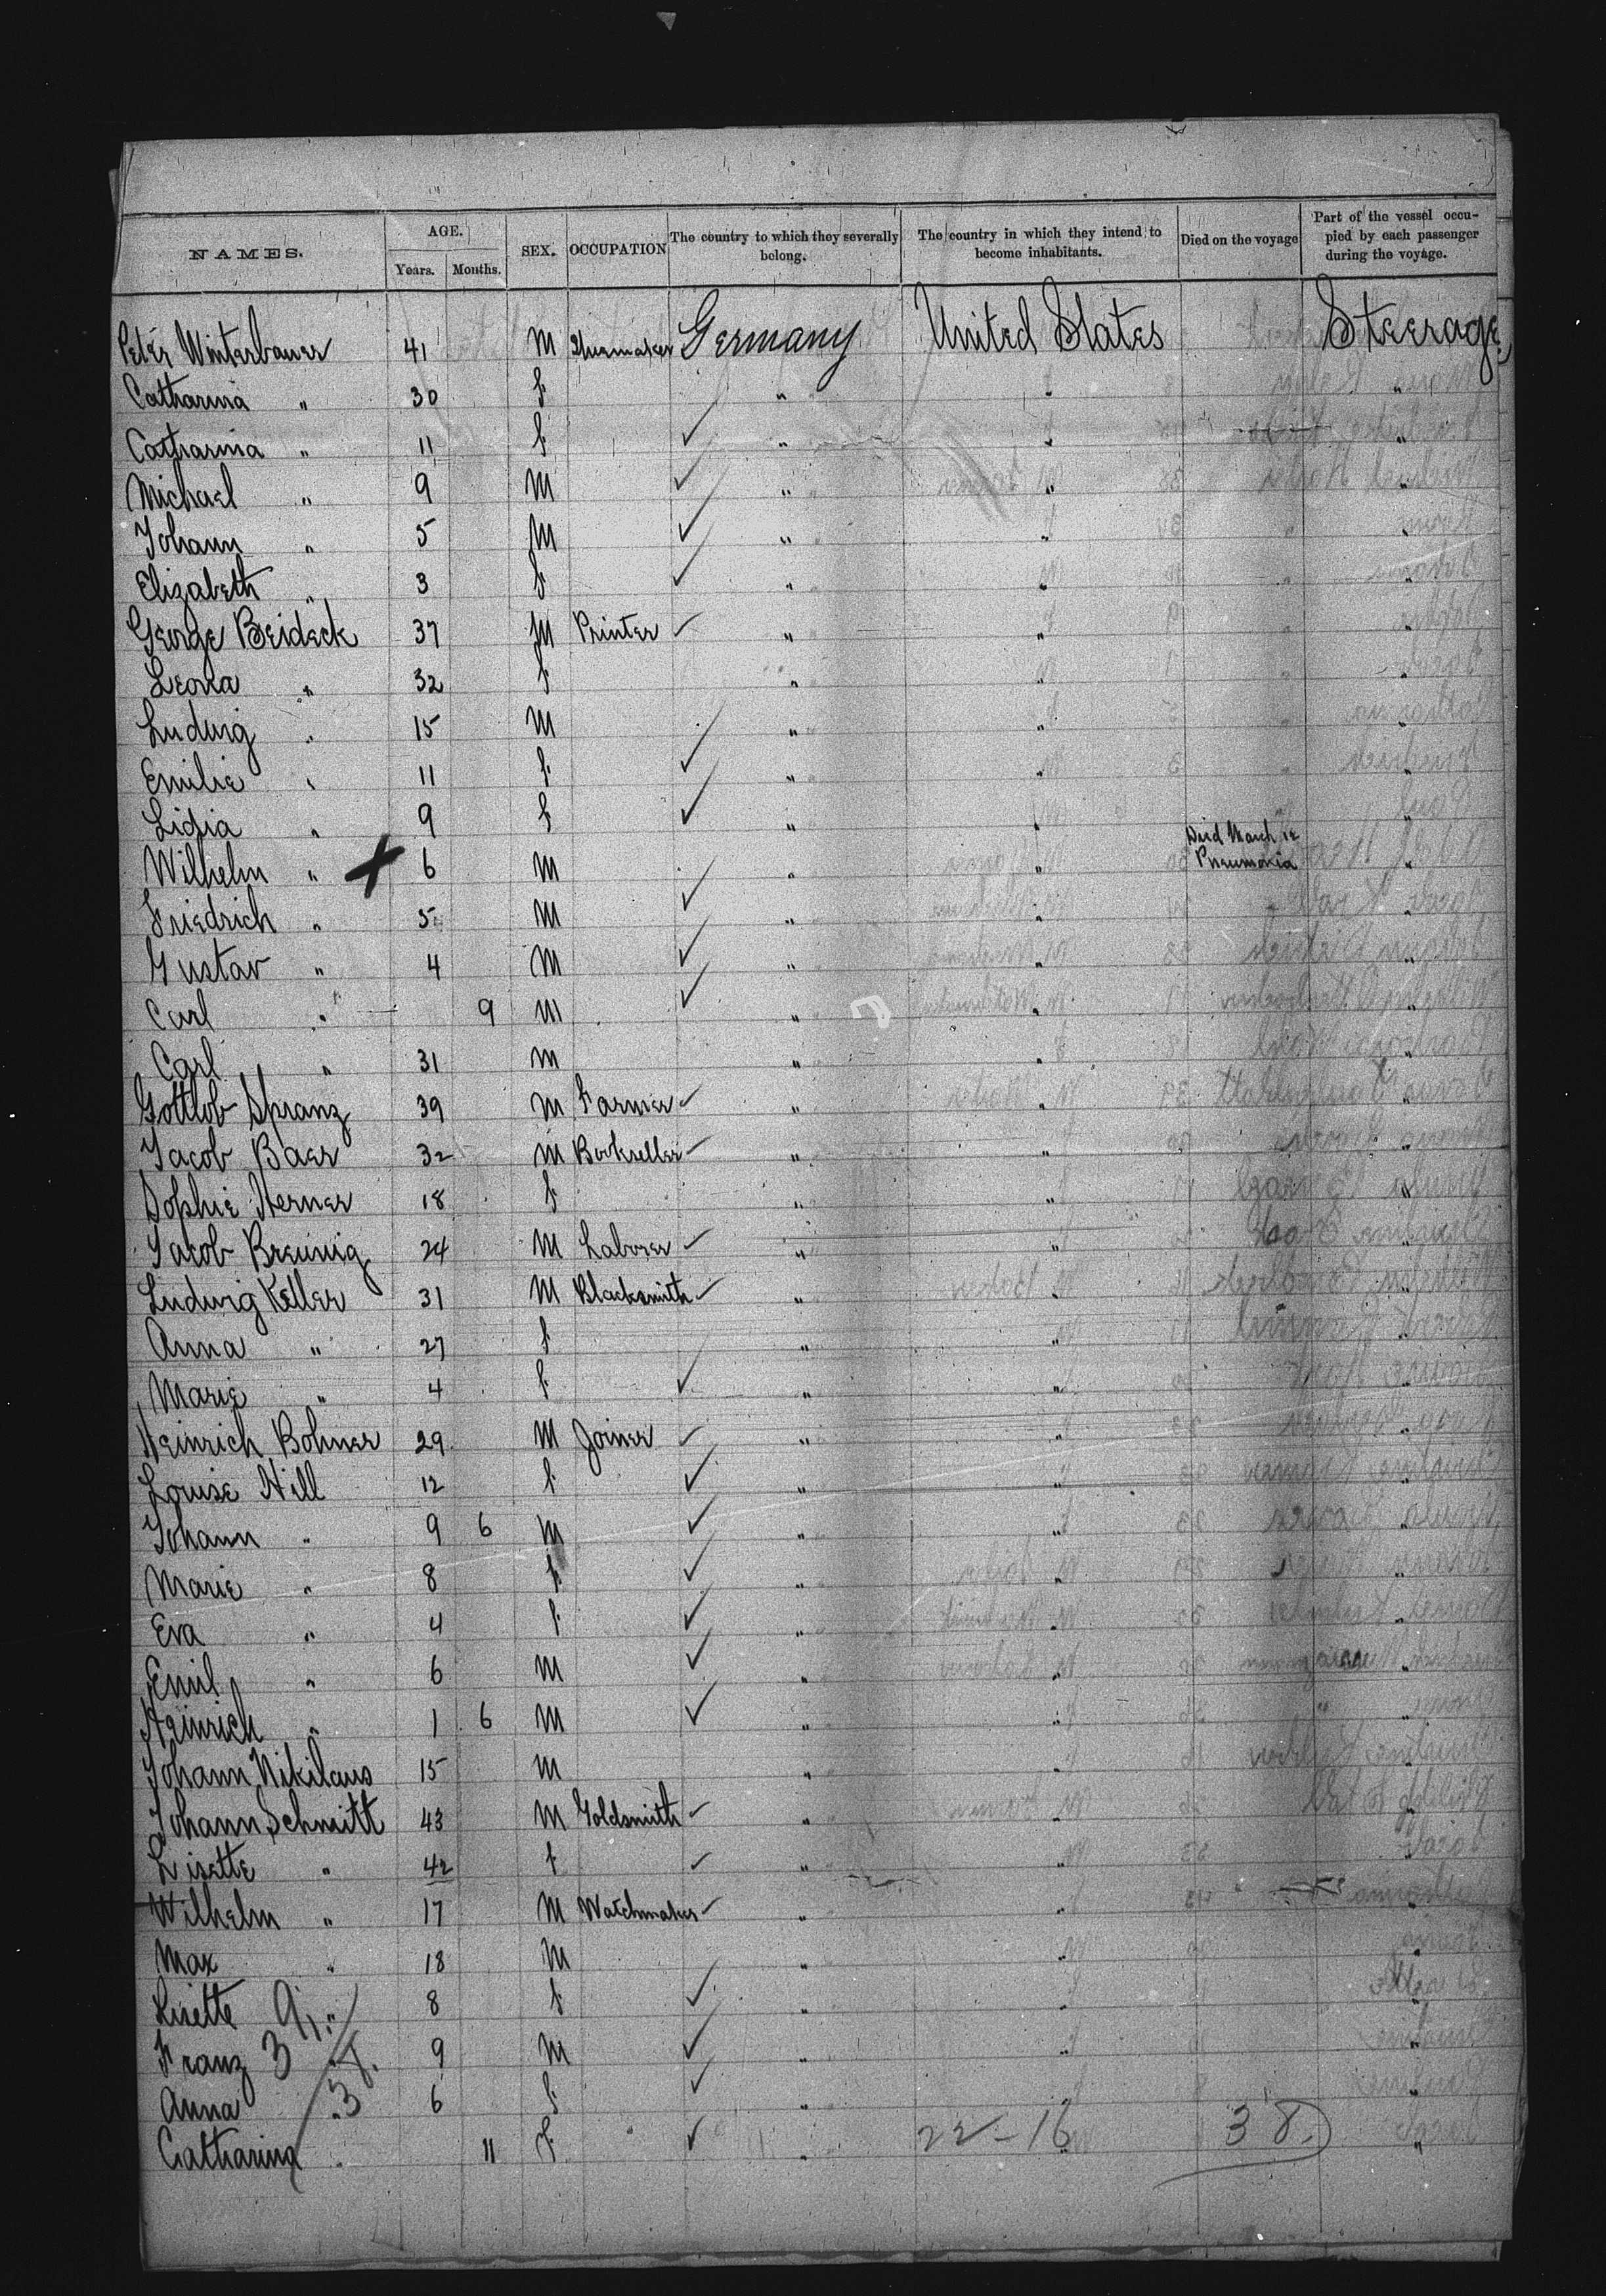 NAMES. AGE. Years. Months. SEX. OCCUPATION The country to which they severally belong. The country in which they intend to become inhabitants. Died on the voyage Part of the vessel occupied by each passenger during the voyage.
Peter Winterbauer 41 M Shoemaker Germany United States Steerage
Catharina " 30 f " "
Catharina " 11 f ✓ " " "
Michael " 9 M ✓ " " "
Johann " 5 M ✓ " " "
Elizabeth " 3 f ✓ " " "
George Beideck 37 M Printer ✓ " " "
Leona " 32 f " " "
Ludwig " 15 M " " "
Emilie " 11 f ✓ " " "
Lidia " 9 f ✓ " " "
Wilhelm " X 6 M " " Died March 12 Pneumonia "
Friedrich " 5 M ✓ " " "
Gustav " 4 M ✓ " " "
Carl " 9 M ✓ " " "
Carl " 31 M " " "
Gottlob Spranz 39 M Farmer ✓ " " "
Jacob Baer 32 M Bookseller ✓ " " "
Sophie Herner 18 f " " "
Jacob Breunig 24 M Laborer ✓ " " "
Ludwig Keller 31 M Blacksmith ✓ " " "
Anna " 27 f " " "
Marie " 4 f ✓ " " "
Heinrich Bohner 29 M Joiner ✓ " " "
Louise Hill 12 f ✓ " " "
Johann " 9 6 M ✓ " " "
Marie " 8 f ✓ " " "
Eva " 4 f ✓ " " "
Emil " 6 M ✓ " " "
Heinrich " 1 6 M ✓ " " "
Johann Nikilaus 15 M " " "
Johann Schmitt 43 M Goldsmith ✓ " " "
Lisette " 42 f ✓ " " "
Wilhelm " 17 M Watchmaker ✓ " " "
Max " 18 M " " "
Lisette " 8 f ✓ " " "
Franz 3 " 9 M ✓ " " "
Anna " 3 6 f ✓ " " "
Catharina " 11 f ✓ " 22-16 38 "